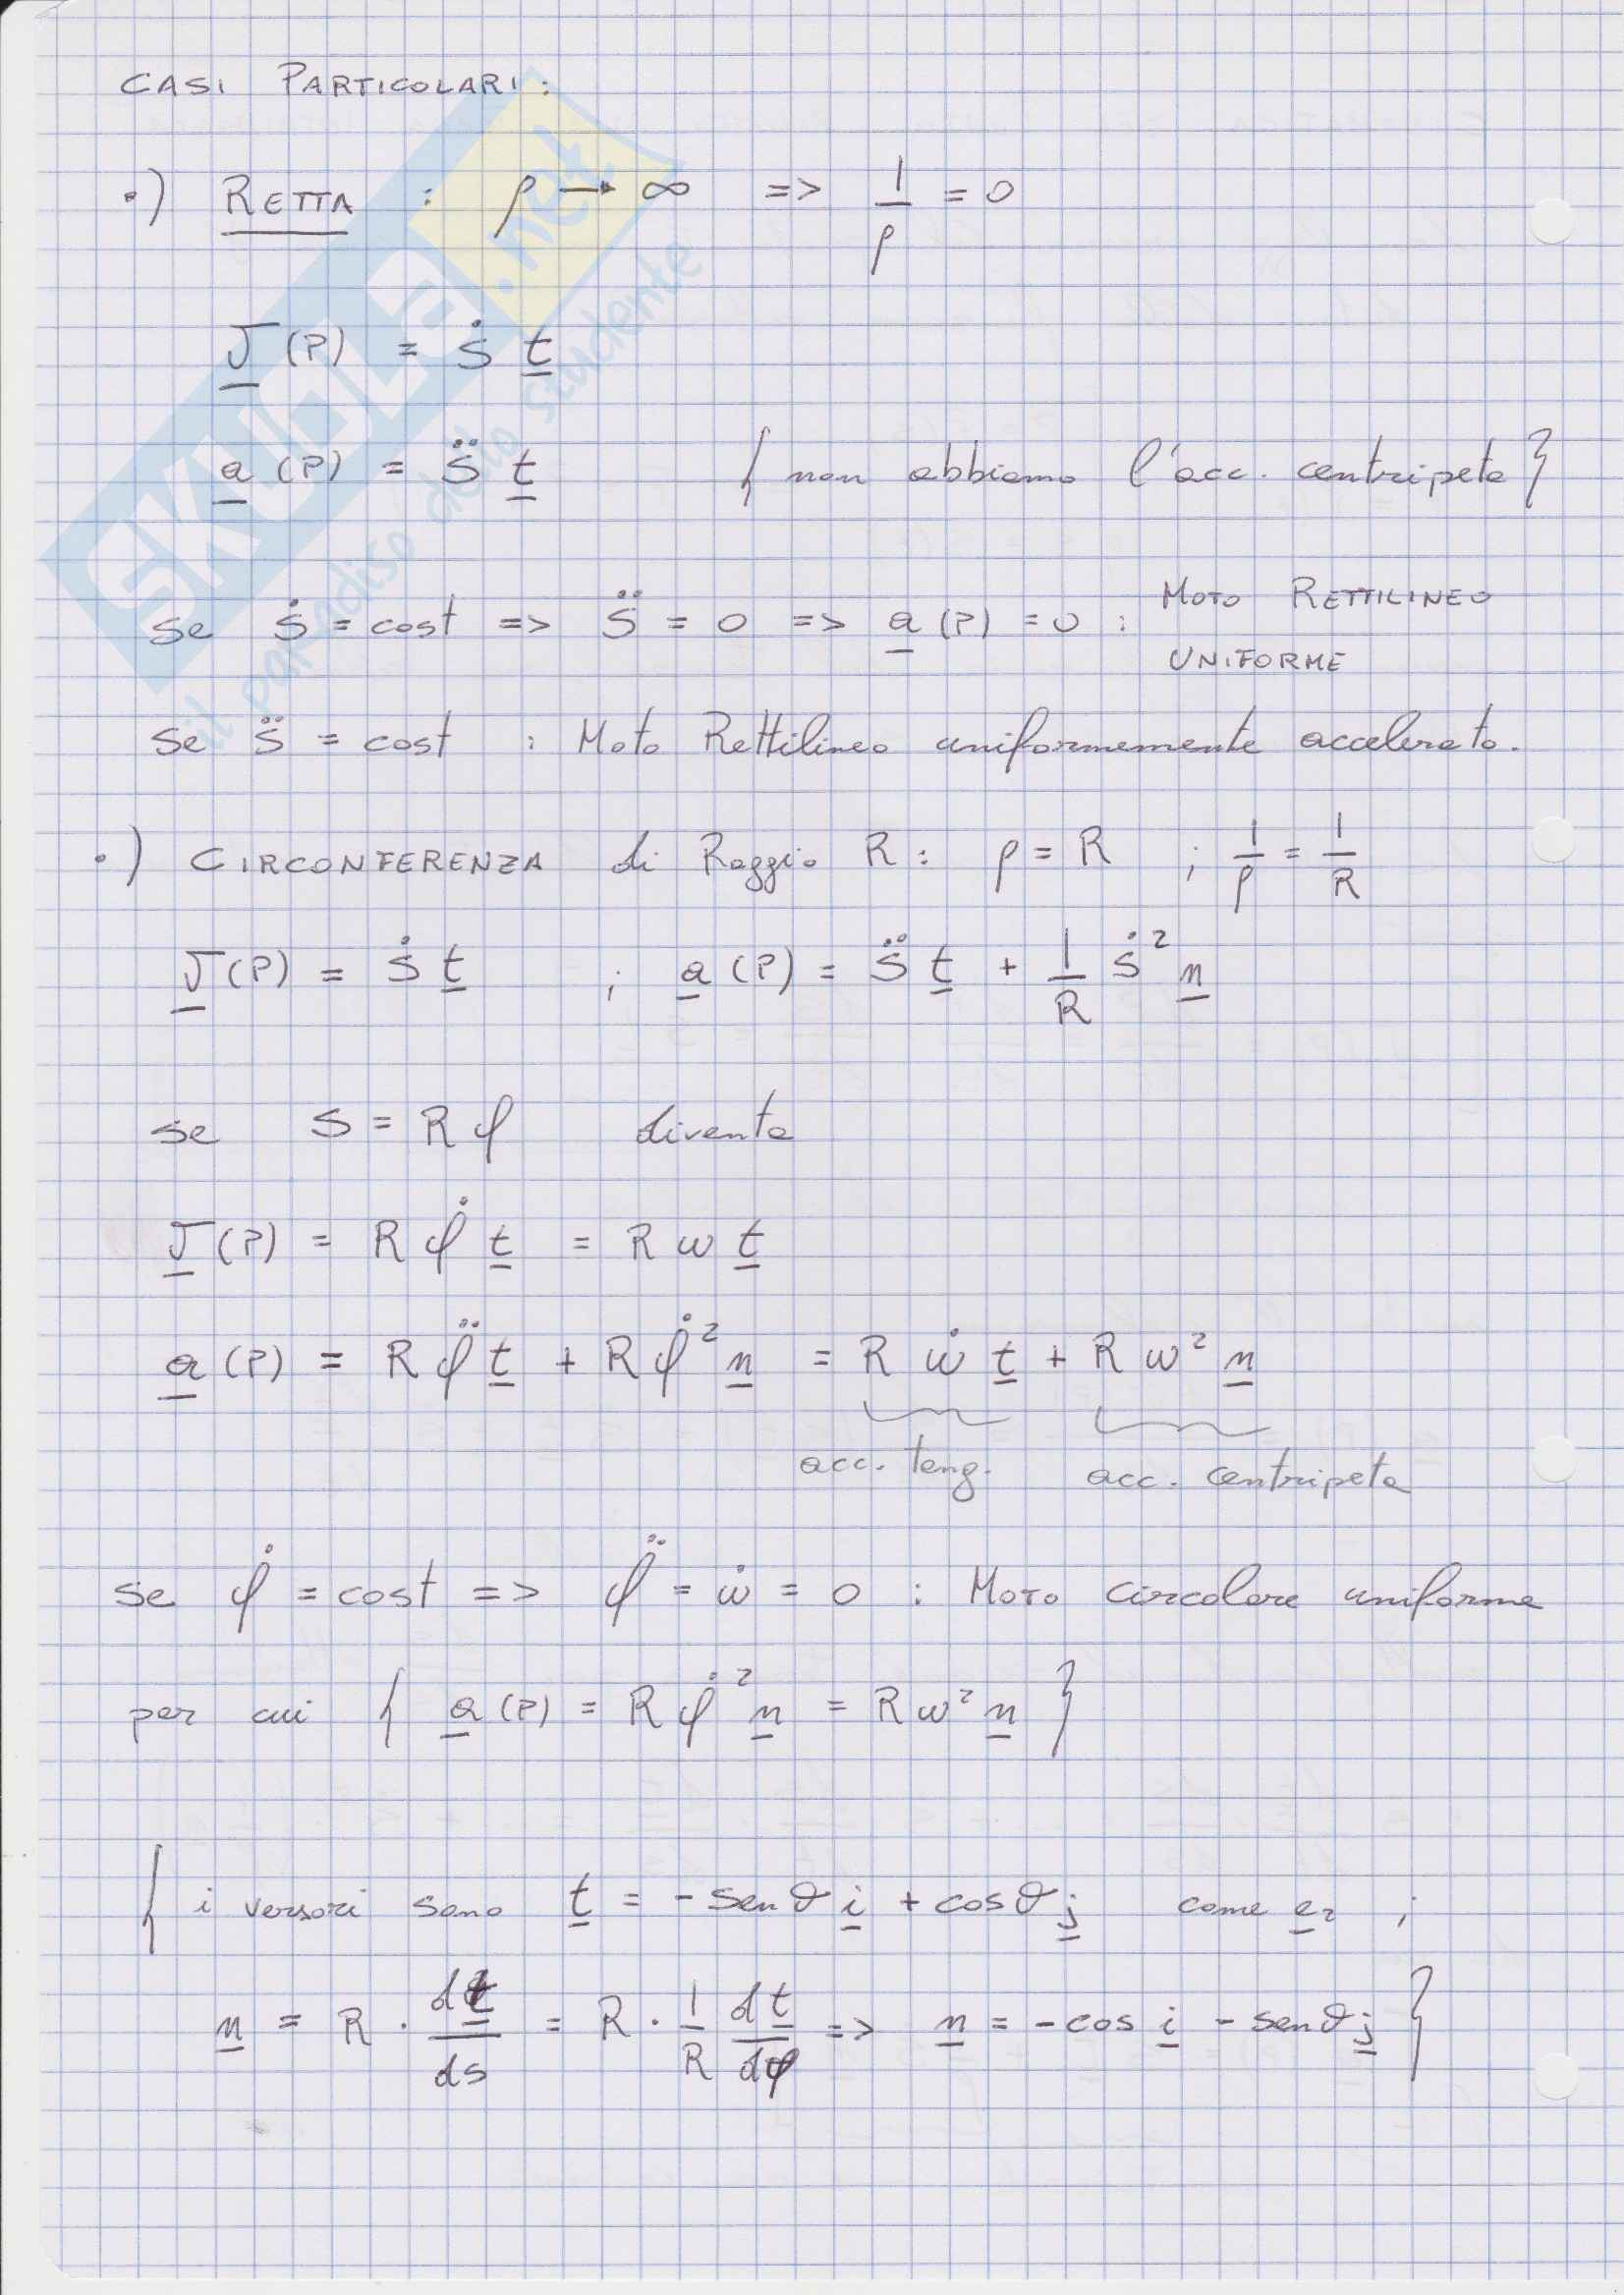 CASI PARTICOLARI:
•) RETTA : ρ → ∞ => 1/ρ = 0
v(P) = ṡ t
a(P) = s̈ t { non abbiamo l'acc. centripeta }
se ṡ = cost => s̈ = 0 => a(P) = 0 : MOTO RETTILINEO
UNIFORME
se s̈ = cost : Moto Rettilineo uniformemente accelerato.
•) CIRCONFERENZA di Raggio R: ρ = R ; 1/ρ = 1/R
v(P) = ṡ t ; a(P) = s̈ t + 1/R ṡ² n
se s = R φ diventa
v(P) = R φ̇ t = R ω t
a(P) = R φ̈ t + R φ̇² n = R ω̇ t + R ω² n
acc. tang. acc. centripeta
se φ̇ = cost => φ̈ = ω̇ = 0 : Moto circolare uniforme
per cui { a(P) = R φ̇² n = R ω² n }
{ i versori sono t = - sen ϑ i + cos ϑ j come e₂ ;
n = R · dt/ds = R · 1/R dt/dφ => n = - cos i - sen ϑ j }
SKUOLA.net
il paradiso dello studente